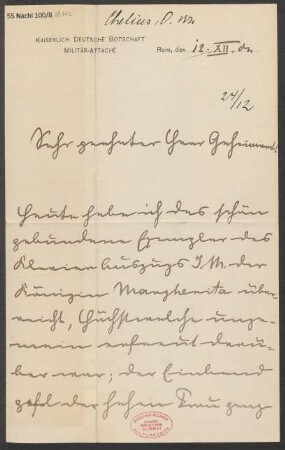 55 Nachl 100/B
Chelius, O. von
KAISERLICH DEUTSCHE BOTSCHAFT
MILITÄR-ATTACHÉ
Rom, den 12. XII.
24/12
Sehr geehrter Herr Geheimrat!
Heute habe ich das schön
gebundene Exemplar des
Klavier Auszugs I. M. der
Königin Margherita über-
reicht, Höchstwelche unge-
mein erfreut darü-
ber war; der Einband
gefiel der hohen Frau ganz